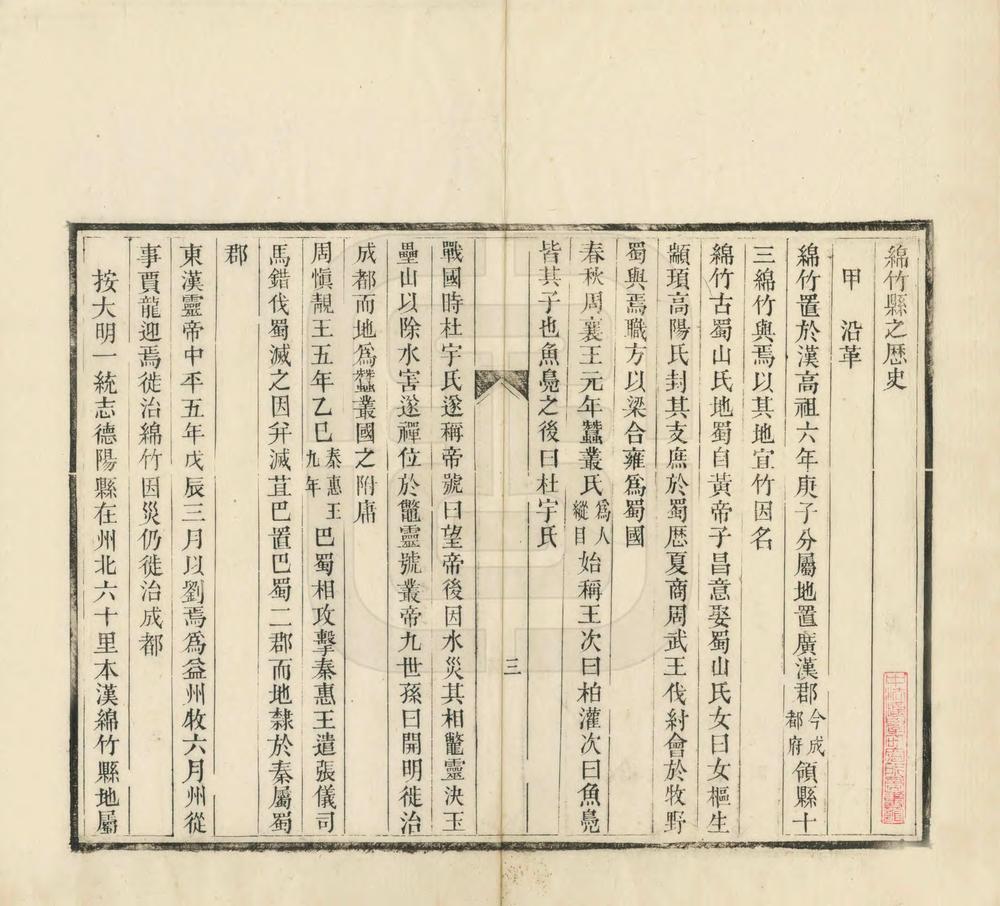 綿竹縣之歷史
甲　沿革
綿竹置於漢高祖六年庚子分屬地置廣漢郡今成都府領縣十
三綿竹與焉以其地宜竹因名
綿竹古蜀山氏地蜀自黃帝子昌意娶蜀山氏女曰女樞生
顓頊高陽氏封其支庶於蜀歷夏商周武王伐紂會於牧野
蜀與焉職方以梁合雍爲蜀國
春秋周襄王元年蠶叢氏爲人縱目始稱王次曰柏灌次曰魚鳧
皆其子也魚鳧之後曰杜宇氏
三
戰國時杜宇氏遂稱帝號曰望帝後因水災其相鼈靈決玉
壘山以除水害遂禪位於鼈靈號叢帝九世孫曰開明徙治
成都而地爲蠶叢國之附庸
周愼靚王五年乙巳秦惠王九年巴蜀相攻擊秦惠王遣張儀司
馬錯伐蜀滅之因并滅苴巴置巴蜀二郡而地隸於秦屬蜀
郡
東漢靈帝中平五年戊辰三月以劉焉爲益州牧六月州從
事賈龍迎焉徙治綿竹因災仍徙治成都
按大明一統志德陽縣在州北六十里本漢綿竹縣地屬